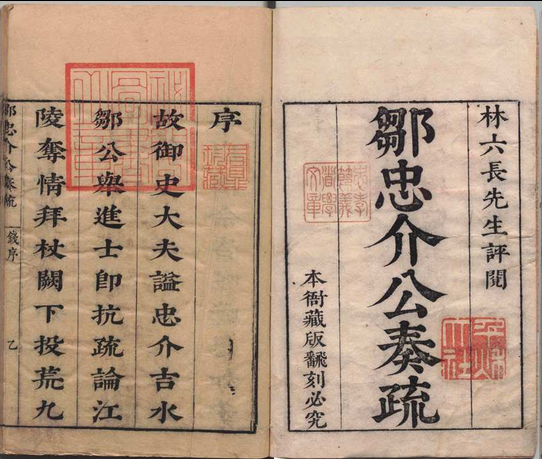 林六長先生評閱
鄒忠介公奏疏
本衙藏版翻刻必究
序
故御史大夫謚忠介吉水
鄒公舉進士卽抗疏論江
陵奪情拜杖闕下投荒九
鄒忠介公奏疏